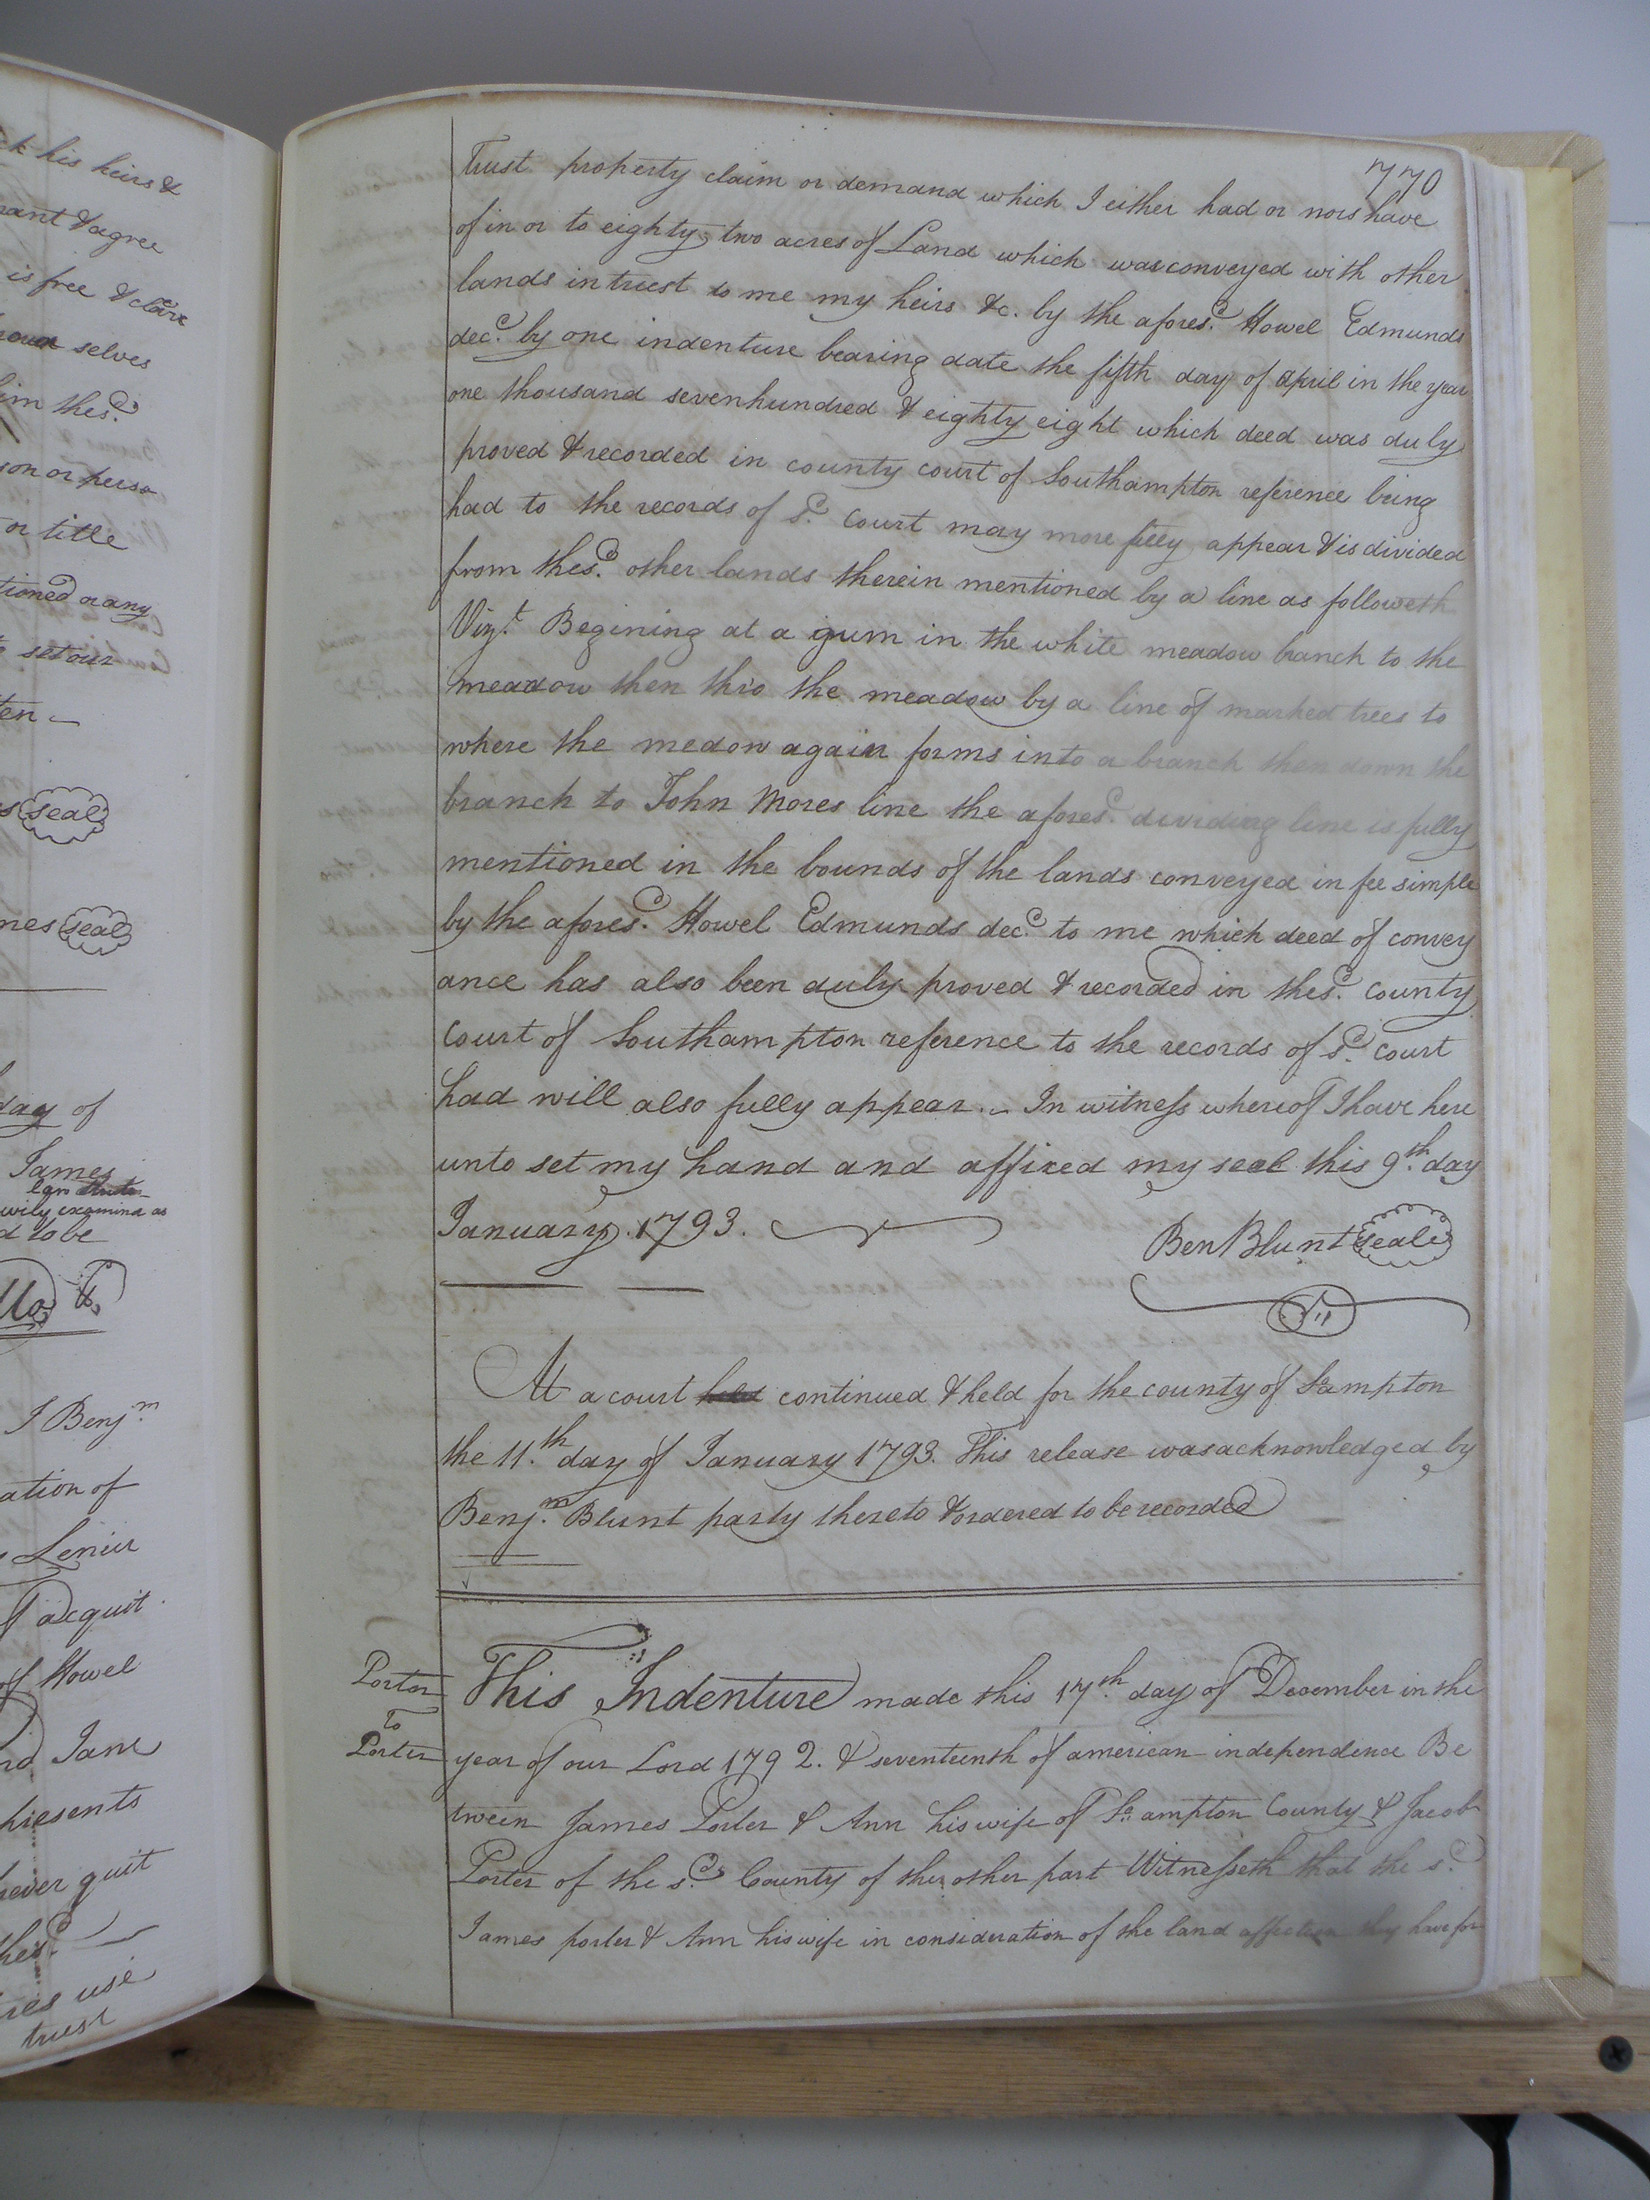 ck his heirs &
rant & agree
is free & clear
selves
him the sd.
son or perso
or title
tioned or any
set our
ten
seal
mes seal
day of
James
wily examin'd as
d to be
I Benjm.
ation of
Lenier
acquit
of Howel
Jane
presents
ever quit
the sd.
use
trust
770
Trust property claim or demand which I either had or now have
of in or to eighty two acres of Land which was conveyed with other
lands in trust to me my heirs &c. by the afores.d Howel Edmunds
dec.d by one indenture bearing date the fifth day of april in the year
one thousand sevenhundred & eighty eight which deed was duly
proved & recorded in county court of Southampton reference being
had to the records of s.d court may more fully appear & is divided
from the s.d other lands therein mentioned by a line as followeth
Viz.t Begining at a gum in the white meadow branch to the
meadow then thro the meadow by a line of marked trees to
where the medow again forms into a branch then down the
branch to John Mores line the afores.d dividing line is fully
mentioned in the bounds of the lands conveyed in fee simple
by the afores.d Howel Edmunds dec.d to me which deed of convey
ance has also been duly proved & recorded in the s.d county
court of Southampton reference to the records of s.d court
had will also fully appear. - In witness whereof I have here
unto set my hand and affixed my seal this 9.th day
January. 1793.
Ben Blunt seal
At a court held continued & held for the county of S:ampton
the 11.th day of January 1793. This release was acknowledged by
Benj.m Blunt party thereto & ordered to be recorded
Porter
To
Porter
This Indenture made this 17.th day of December in the
year of our Lord 1792. & seventeenth of american independence Be
tween James Porter & Ann his wife of S:ampton County & Jacob
Porter of the s.d County of the other part Witnesseth that the s.d
James porter & Ann his wife in consideration of the land affection they have for